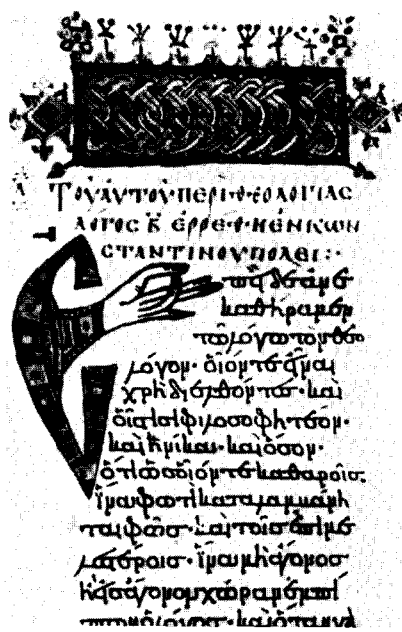 ΤΟΥ ΑΥΤΟΥ ΠΕΡΙ ΘΕΟΛΟΓΙΑΣ
ΛΟΓΟΣ Β ΕΡΡΕΘΗ ΕΝ ΚΩΝ
ΣΤΑΝΤΙΝΟΥΠΟΛΕΙ :·
Ἐπειδὴ ἀνε
καθήραμεν
τῶ λόγω τὸν θεο
λόγον· οἷόν τε εἶναι
χρὴ διελθόντες· καὶ
οἷς τισὶ φιλοσοφητέον·
καὶ ἡνίκα· καὶ ὅσον·
ὅτι ὡς οἷόν τε καθαροῖς·
ἵνα φωτὶ καταλαμβάνη
ται φῶς· καὶ τοῖς ἐπιμε
λεστέροις· ἵνα μὴ ἄγονος
ἦ εἰς ἄγονον χώραν ἐμπί
πτων ὁ λόγος· καὶ ὅταν γα